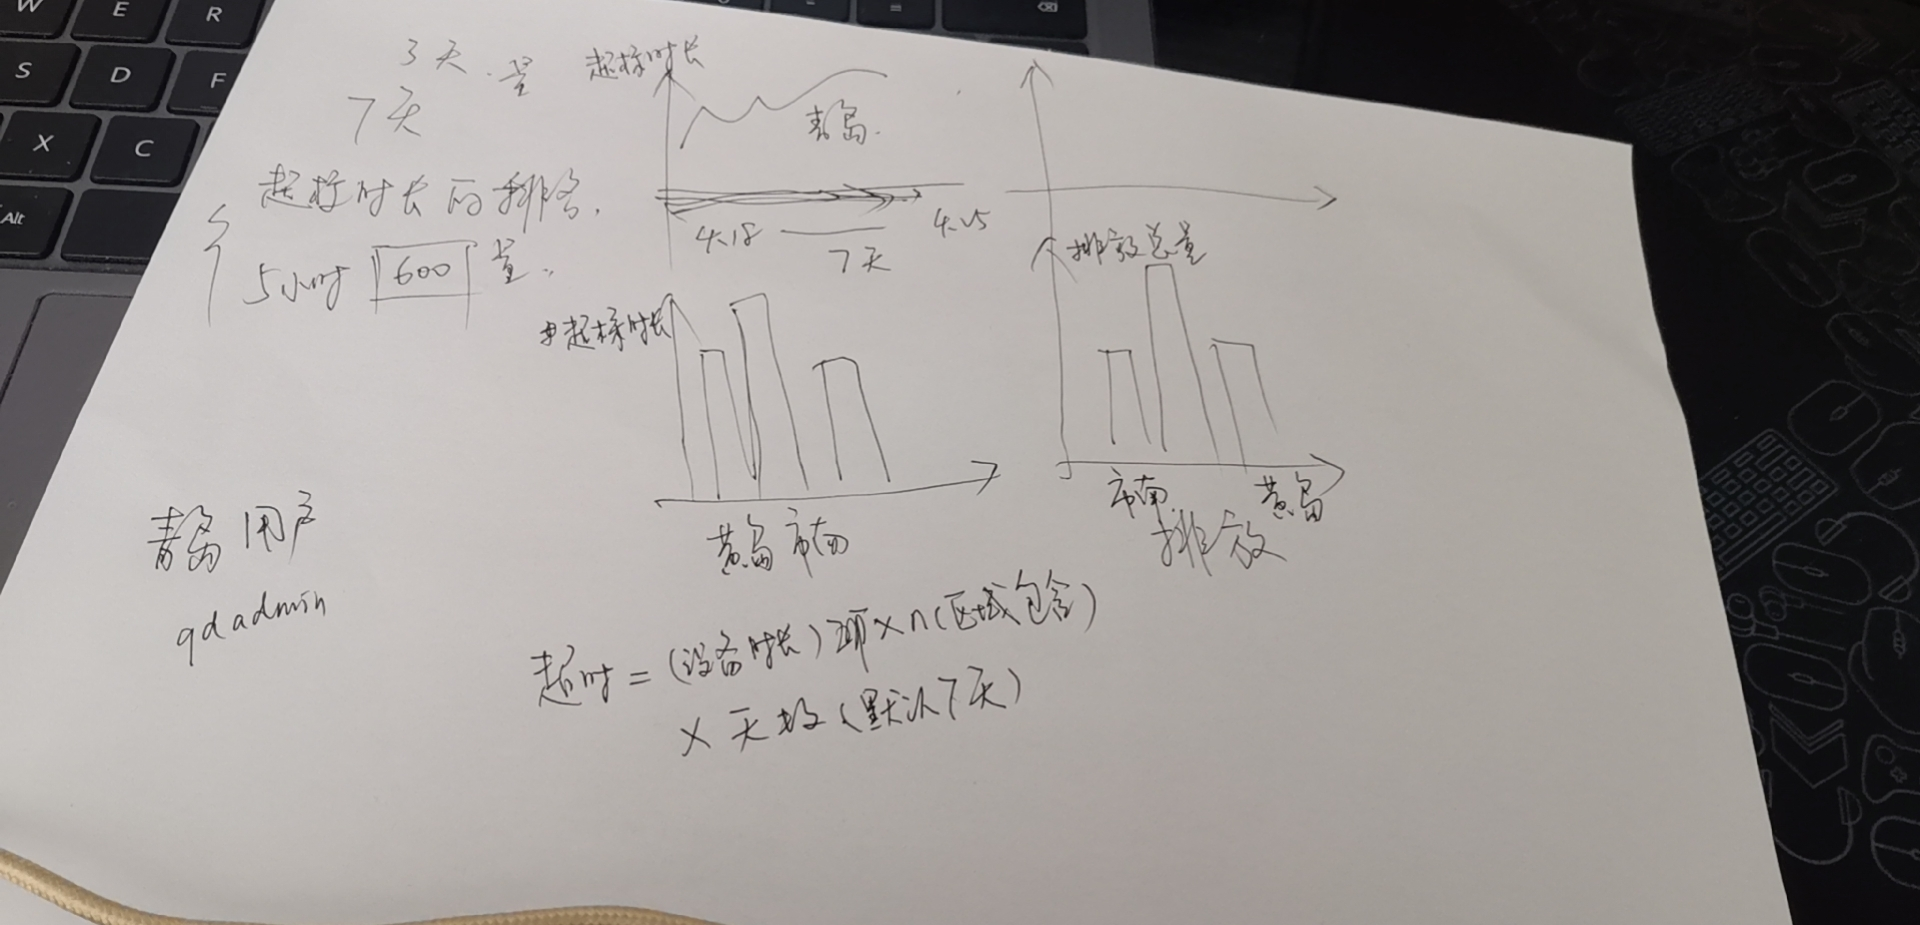 W E R
S D F
X C
Alt
3天.量
7天
超标时长的排名.
5小时 600 量.
超标时长
青岛.
4.18
7天
排放总量
超标时长
黄岛 市南
市南 黄岛
排放
青岛用户
qdadmin
超时=(设备时长)项×n(区域包含)
×天数(默认7天)